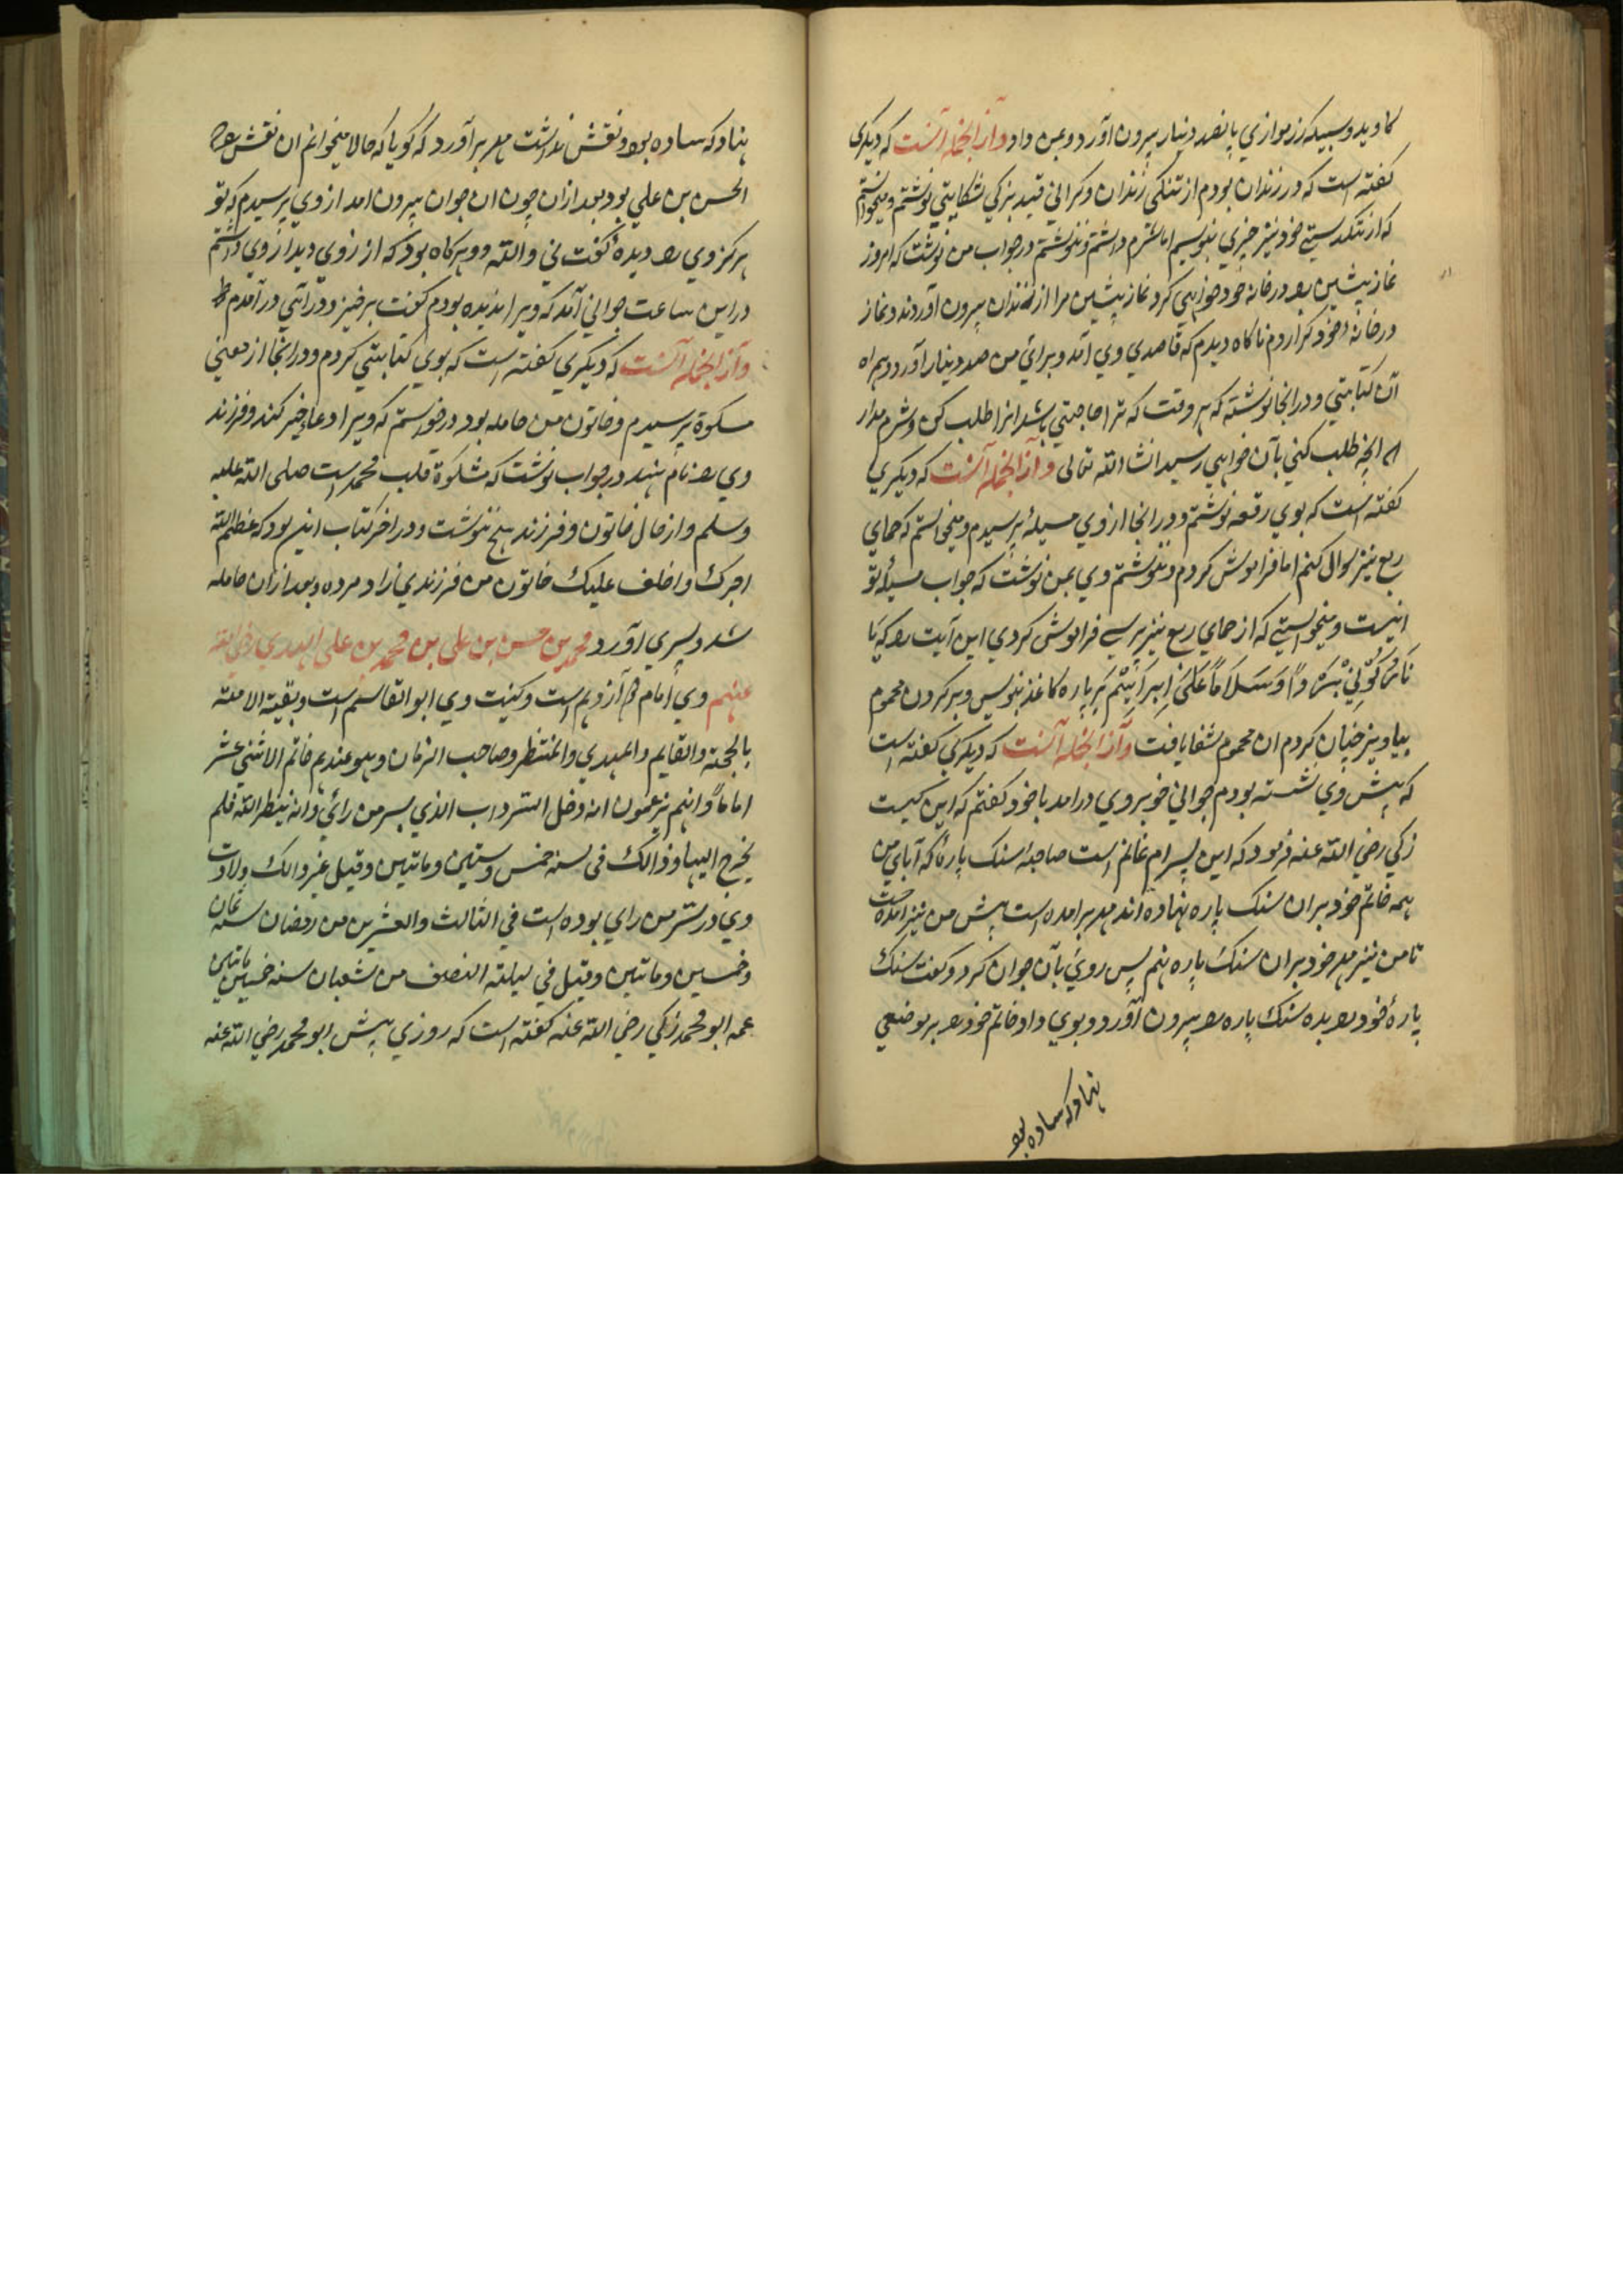 کاوید و سبیکه زر موازی پانصد دینار بیرون آورد و بمن داد وازانجمله آنست که دیکری
کفته است که در زندان بودم از تنکی زندان و کرانی قید بزکی شکایتی نوشتم و میخواستم
که از تنکدستی خود نیز چیزی بنویسم اما شرم داشتم و ننوشتم در جواب من نوشت که امروز
نماز پیشین را در خانه خود خواهی کرد نماز پیشین مرا از زندان بیرون آوردند و نماز
در خانه خود کزاردم ناکاه دیدم که قاصدی وی آمد و برای من صد دینار آورد و همراه
آن کتابتی و در انجا نوشته که هر وقت که ترا حاجتی باشد انرا طلب کن و شرم مدار
که انچه طلب کنی بآن خواهی رسید انشا الله تعالی وازانجمله آنست که دیکری
کفته است که بوی رقعه نوشتم و در انجا از وی مسیلهٔ پرسیدم و میخواستم که حمای
ربع نیز سوال کنم اما فراموش کردم و ننوشتم وی بمن نوشت که جواب مسیلهٔ تو
اینست و میخواستی که از حمای ربع نیز پرسی فراموش کردی این آیت را که یا
نار کونی بردا و سلاما علی ابراهیم بر پاره کاغذ بنویس و بر کردن محموم
بیاویز چنان کردم ان محموم شفا یافت وازانجمله آنست که دیکری کفته است
که پیش وی نشسته بودم جوانی خوبروی درامد با خود کفتم که این کیست
زکی رضی الله عنه فرمود که این پسر ام غانم است صاحبهٔ سنک پارهٔ که آبای من
همه خاتم خود بران سنک پاره نهاده اند مهر برامده است پیش من نیز امده است
تا من نیز مهر خود بران سنک پاره نهم پس روی بآن جوان کرد و کفت سنک
پارهٔ خود را بده سنک پاره را بیرون آورد و بوی داد خاتم خود را بر موضعی
نهاد که ساده بود
نهاد که ساده بود و نقش نداشت مهر برآورد که کویا که حالا میخوانم ان نقش را که
الحسن بن علی بود و بعد ازان چون ان جوان بیرون امد از وی پرسیدم که تو
هرکز وی را دیده کفت نی والله و دیرکاه بود که ارزوی دیدار وی داشتم
در این ساعت جوانی آمد که ویرا ندیده بودم کفت برخیز و درآئی درآمدم
وازانجمله آنست که دیکری کفته است که بوی کتابتی کردم و در انجا از معنی
مشکوة پرسیدم و خاتون من حامله بود درخواستم که ویرا دعا خیر کند و فرزند
وی را نام نهد در جواب نوشت که مشکوة قلب محمد است صلی الله علیه
وسلم و از حال خاتون و فرزند هیچ ننوشت و در اخر کتاب این بود که عظم الله
اجرک و اخلف علیک خاتون من فرزندی زاد مرده و بعد ازان حامله
شد و پسری آورد محمد بن حسن بن علی بن محمد بن علی الهدی رضی الله
عنهم وی امام دوازدهم است و کنیت وی ابوالقاسم است و بقیة الامته
بالحجة والقایم والمهدی والمنتظر وصاحب الزمان وهو عندهم خاتم الاثنی عشر
اماما وانهم یزعمون انه دخل السرداب الذی بسرمن رأی وامه ینظر الیه فلم
یخرج الیها وذالک فی سنه خمس وستین ومائتین وقیل غیر ذالک ولادت
وی در سرمن رای بوده است فی الثالث والعشرین من رمضان سنه ثمان
وخمسین ومائتین وقیل فی لیلة النصف من شعبان سنه خمس خمسین مائتین
عمه ابو محمد زکی رضی الله عنه کفته است که روزی پیش ابو محمد رضی الله عنه